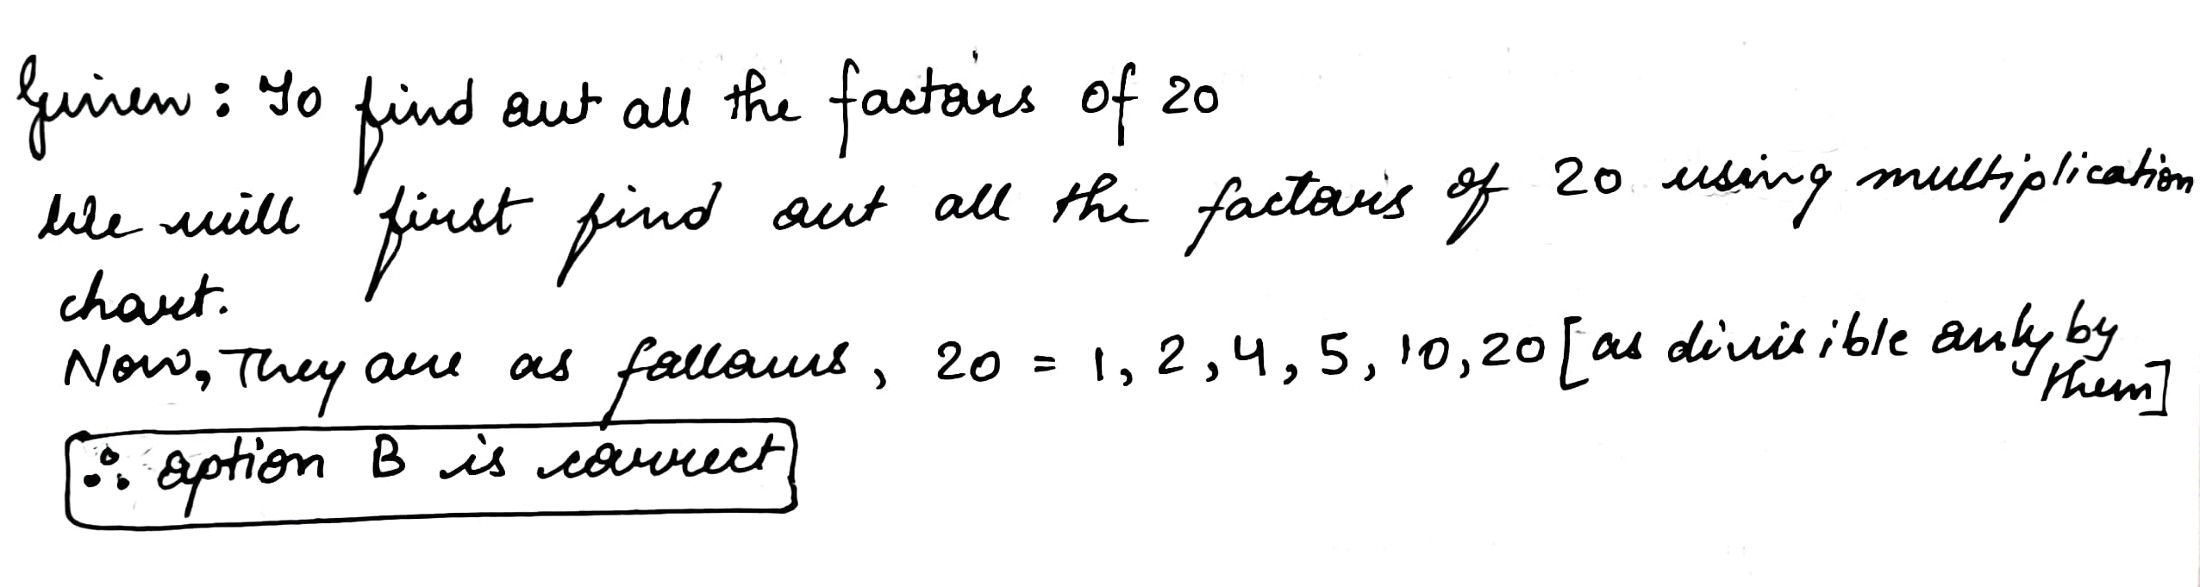 Given : To find out all the factors of 20
We will first find out all the factors of 20 using multiplication
chart.
Now, They are as follows, 20 = 1, 2, 4, 5, 10, 20 [as divisible only by
them]
∴ option B is correct